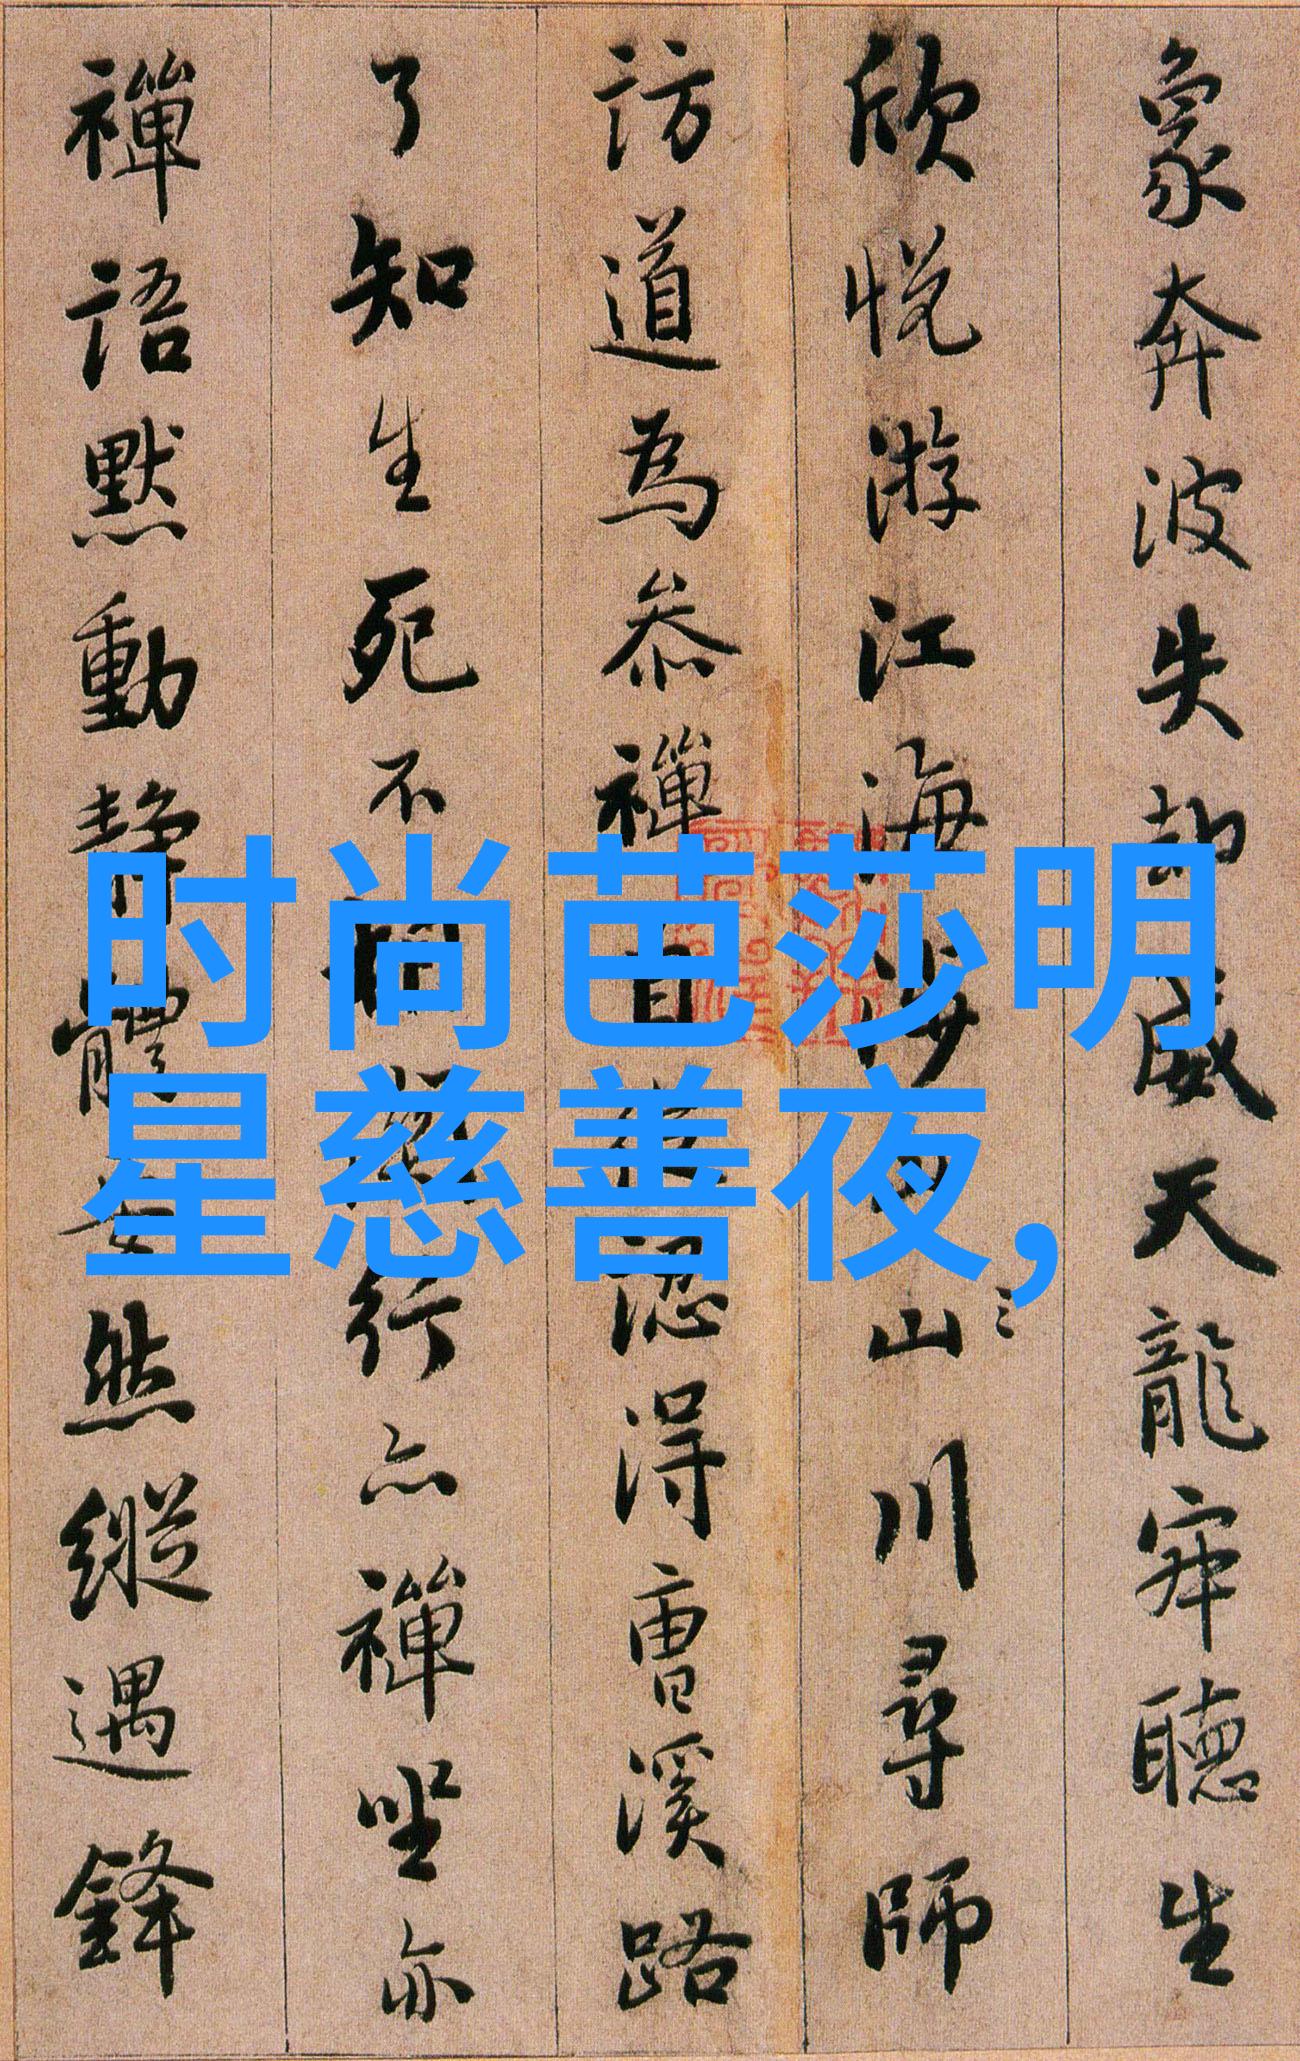 象奔波失却威天龍寂聽生
欣悅游江海山川尋師
訪道為叅禪自認得曹溪路
了知生死不行亦禪坐亦
禪語默動靜體安然縱遇鋒
时尚芭莎明
星慈善夜,